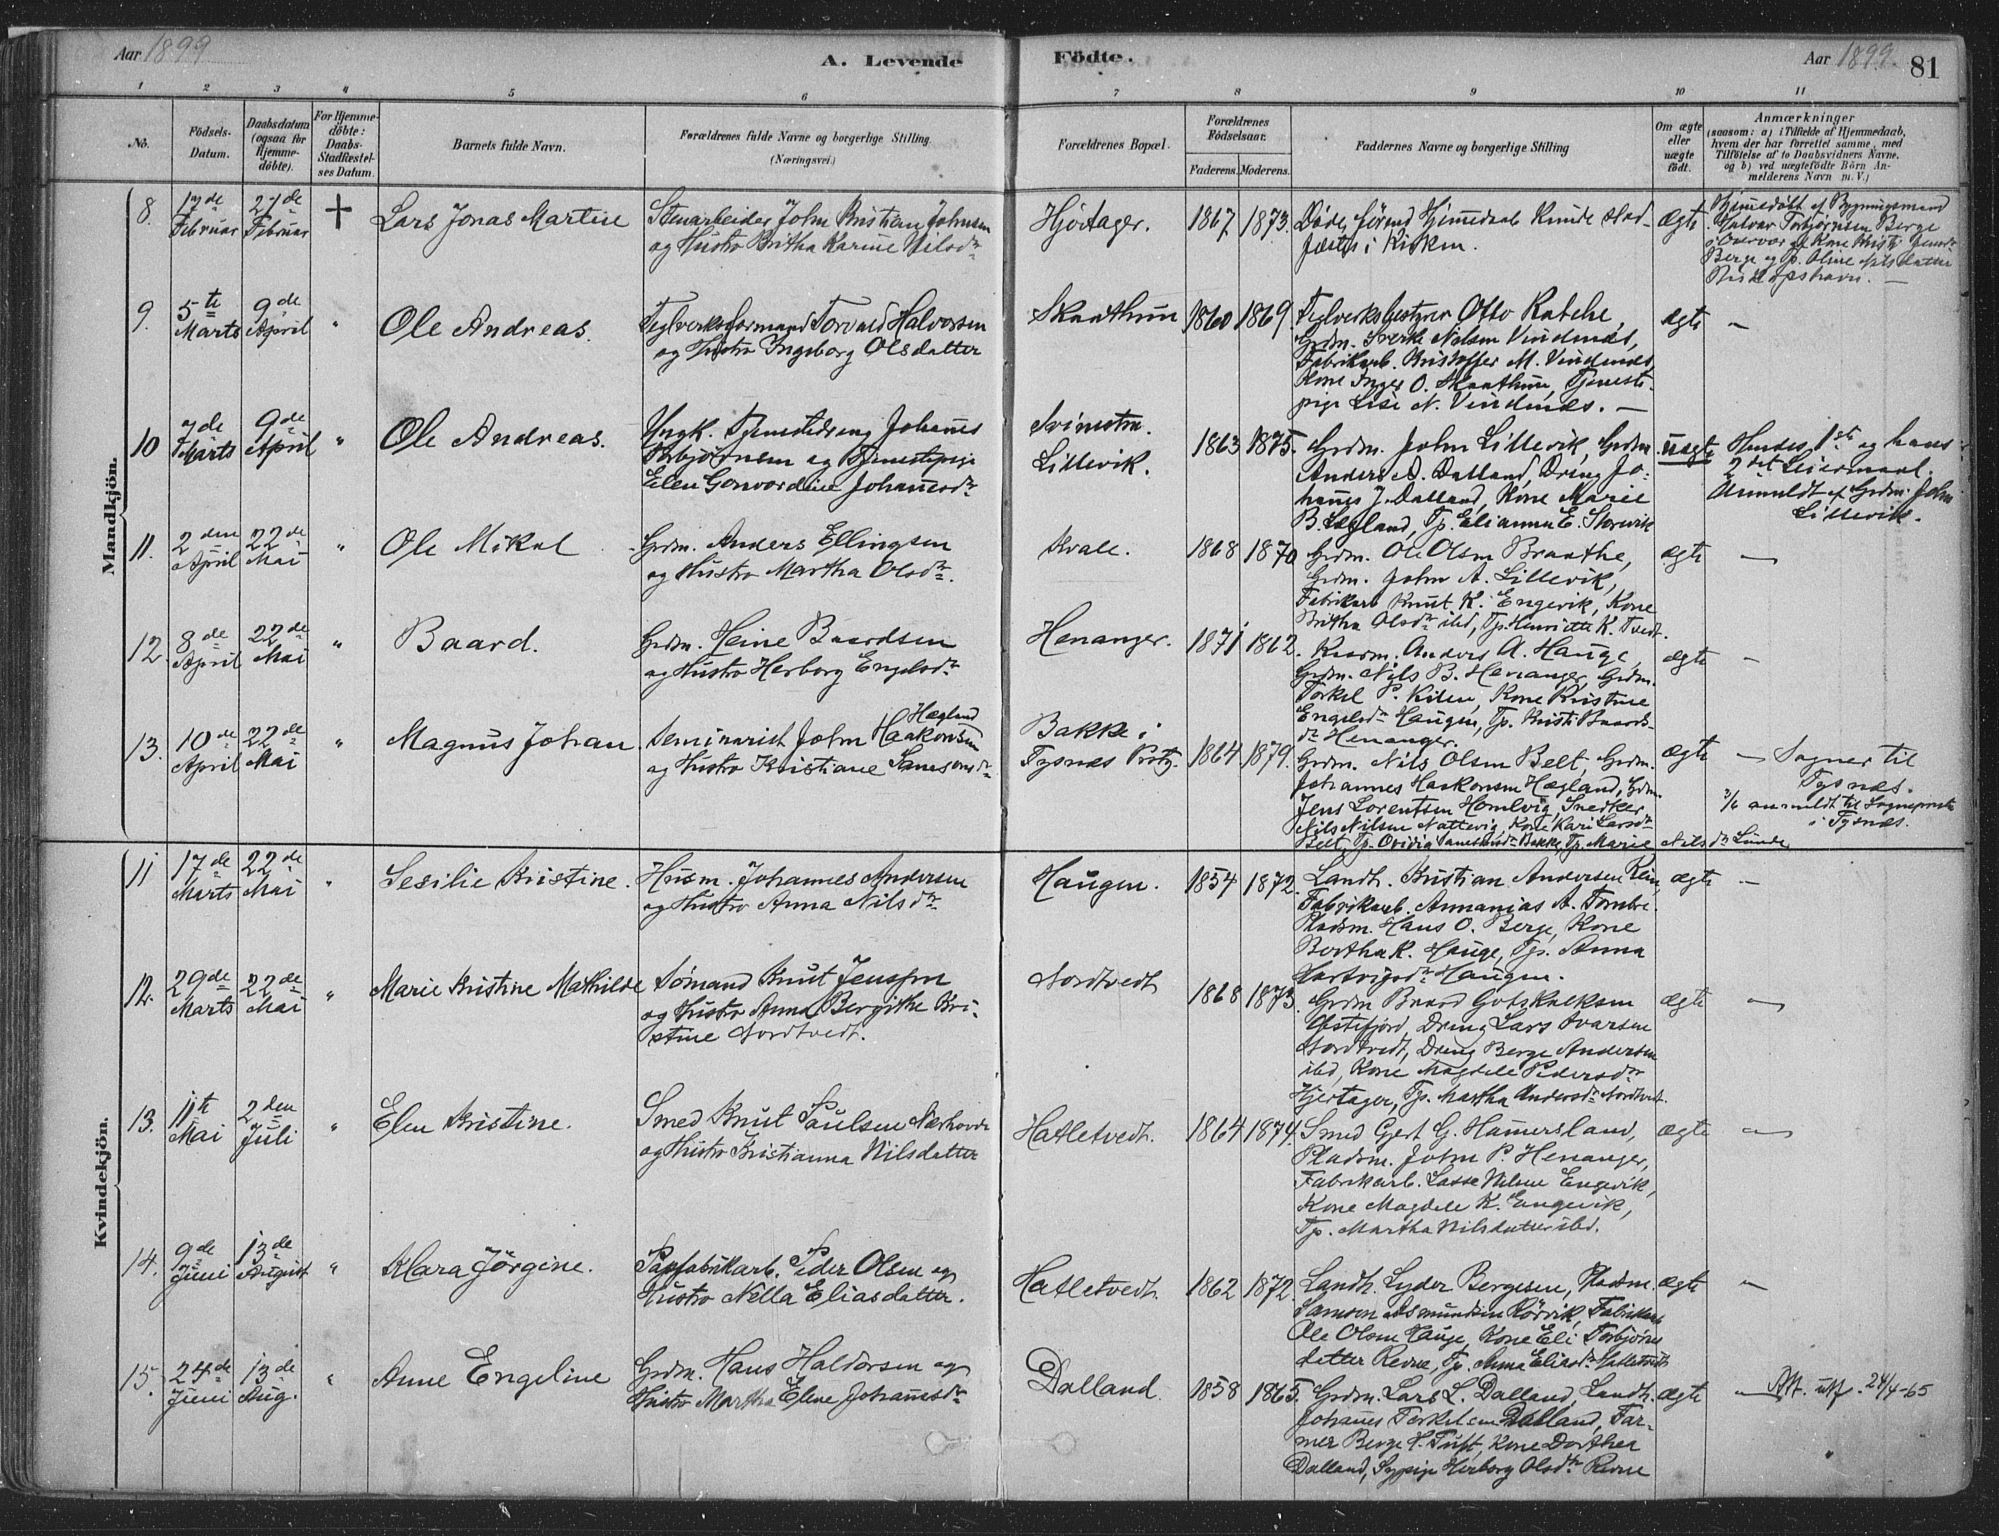 Aar 1899
A. Levende
Födte.
Aar 1899.
81
1 2 3 4 5 6 7 8 9 10 11
No.
Födsels-
Datum.
Daabsdatum
(ogsaa for
Hjemme-
döbte).
For Hjemme-
döbte:
Daabs-
Stadfæstel-
ses Datum.
Barnets fulde Navn.
Forældrenes fulde Navne og borgerlige Stilling
(Næringsvei.)
Forældrenes Bopæl.
Forældrenes
Födselsaar.
Faderens. Moderens.
Faddernes Navne og borgerlige Stilling
Om ægte
eller
uægte
födt.
Anmærkninger
(saasom: a) i Tilfælde af Hjemmedaab,
hvem der har forrettet samme, med
Tilföielse af to Daabsvidners Navne.
og b) ved uægtefödte Börn An-
melderens Navn m. V.)
Mandkjön.
8.
17de
Februar
27de
Februar
Lars Jonas Martin
Stenarbeider John Kristian Johnsen
og Hustro Britha Karine Nilsdtr
Hjørtager.
1867 1873.
Døde førend Hjemmedaab kunde stad-
fæstes i Kirken.
ægte
Hjemedøbt af Bygningsmand
Halvor Torbjørnsen Berge
i Overvær af Kone Kristi
Berge og P. Oline Nilsdatter
9.
5te
Marts
9de
April
"
Ole Andreas.
Teglverksformand Torvald Halvorsen
og Hustro Ingeborg Olsdatter
Skaathun
1860 1869.
Teglverksbestyrer Otto Rateke
Grdm. Sverke Nilsen Vindenæs,
Fabrikarb. Kristoffer M. Vindenæs,
Kone Inger O. Skaathun, Tjeneste-
pige Lise N. Vindenæs. —
ægte
—
10
7de
Marts
9de
April
"
Ole Andreas.
Ungk. Tjenestedreng Johannes
Torbjørnsen og Tjenestepige
Elen Gonvordine Johannesdtr
Lillevik.
1863 1875.
Grdm. John Lillevik, Grdm
Anders A. Dalland, Dreng Jo-
hannes J. Dalland, Kone Marie
B. Lægland, Tp. Elianna E. Storevik
uægte
Hendes 1ste og hans
2det Leiermaal.
Anmeldt af Grdm. John
Lillevik.
11.
2den
April
22de
Mai
"
Ole Mikal
Grdm. Anders Ellingsen
og Hustro Martha Olsdtr.
Kvale.
1868 1870
Grdm. Ole Olsen Braathe,
Grdm. John A. Lillevik,
Fabrikarb Knut K. Engevik, Kone
Britha Olsdtr ibd, Tp. Henriette K. Tvedt.
ægte
—
12.
8de
April
22de
Mai
"
Baard.
Grdm. Heine Baardsen
og Hustro Herborg Engelsdtr
Henanger.
1871 1862.
Kaarm. Anders A. Hauge,
Grdm. Nils B. Henanger, Grdm.
Torkel P. Kilen, Kone Kristine
Engelsdtr Haugen, Tp. Kristi Baards-
dtr Henanger.
ægte
—
13.
10de
April
22de
Mai
"
Magnus Johan
Seminarist John Haakonsen
Hægland
og Hustro Kristiane Samsonsdtr
Bakke i
Tysnæs Prstg.
1864 1879.
Grdm. Nils Olsen Belt, Grdm.
Johannes Haakonsen Hægland, Grdm.
Jens Lorentsen Homlevig, Snedker
Nils Nilsen Nattevig, Kone Kari Larsdtr
Belt, Tp. Ovidia Samsonsdtr Bakke, Tp. Marie Nilsdtr Lunde
ægte
— Sogner til
Tysnæs.
3/6 anmeldt til Sognepresten
i Tysnæs.
Kvindekjön.
11
17de
Marts
22de
Mai
"
Sesilie Kristine.
Husm. Johannes Andersen
og Hustro Anna Nilsdtr
Haugen.
1854 1872.
Landh. Kristian Andersen
Fabrikarb. Annanias A. Tombre.
Pladsm. Hans O. Berge, Kone
Bertha K. Hauge, Tp. Anna
Hartvigsdtr Haugen.
ægte
—
12.
29de
Marts
22de
Mai
"
Marie Kristine Mathilde
Sømand Knut Jenssen
og Hustro Anna Bergithe Kri-
stine Nordtvedt.
Nordtvedt
1868 1873.
Grdm Baard Gotskalksen
Østefjord, Dreng Lars Ivarsen
Nordtvedt, Dreng Berge Andersen
ibd, Kone Magdele Pedersdtr
Hjertager, Tp. Martha Andersdtr Nordtvedt.
ægte
—
13.
11te
Mai
2den
Juli
"
Elen Kristine.
Smed Knut Paulsen Nærhovde
og Hustro Kristianna Nilsdatter
Hatletvedt.
1864 1874.
Smed Gert G. Hamersland,
Pladsm. John P. Henanger,
Fabrikarb. Lasse Nilsen Engevik,
Kone Magdele K. Engevik,
Tp. Martha Nilsdatter ibd.
ægte
—
14.
9de
Juni
13de
August
"
Klara Jörgine.
Papfabrikarb. Peder Olsen og
Hustro Nella Eliasdatter.
Hatletvedt.
1862 1872.
Landh. Lyder Bergesen, Pladsm.
Samson Asmundsen Rørvik, Fabrikarb
Ole Olsen Hauge, Kone Eli Torbjørns
datter Revne, Tp. Anna Eliasdtr Hatletvedt
ægte
—
15.
24de
Juni
13de
Aug.
"
Anne Engeline
Grdm. Hans Haldorsen og
Hustro Martha Elene Johannesdtr
Dalland.
1858 1865.
Grdm. Lars L. Dalland, Landh.
Johannes Torkelsen Dalland, Far-
mer Berge H. Tuft, Kone Dorthea
Dalland, Sypige Herborg Olsdtr Revne
ægte
— Att. utf. 24/4-65